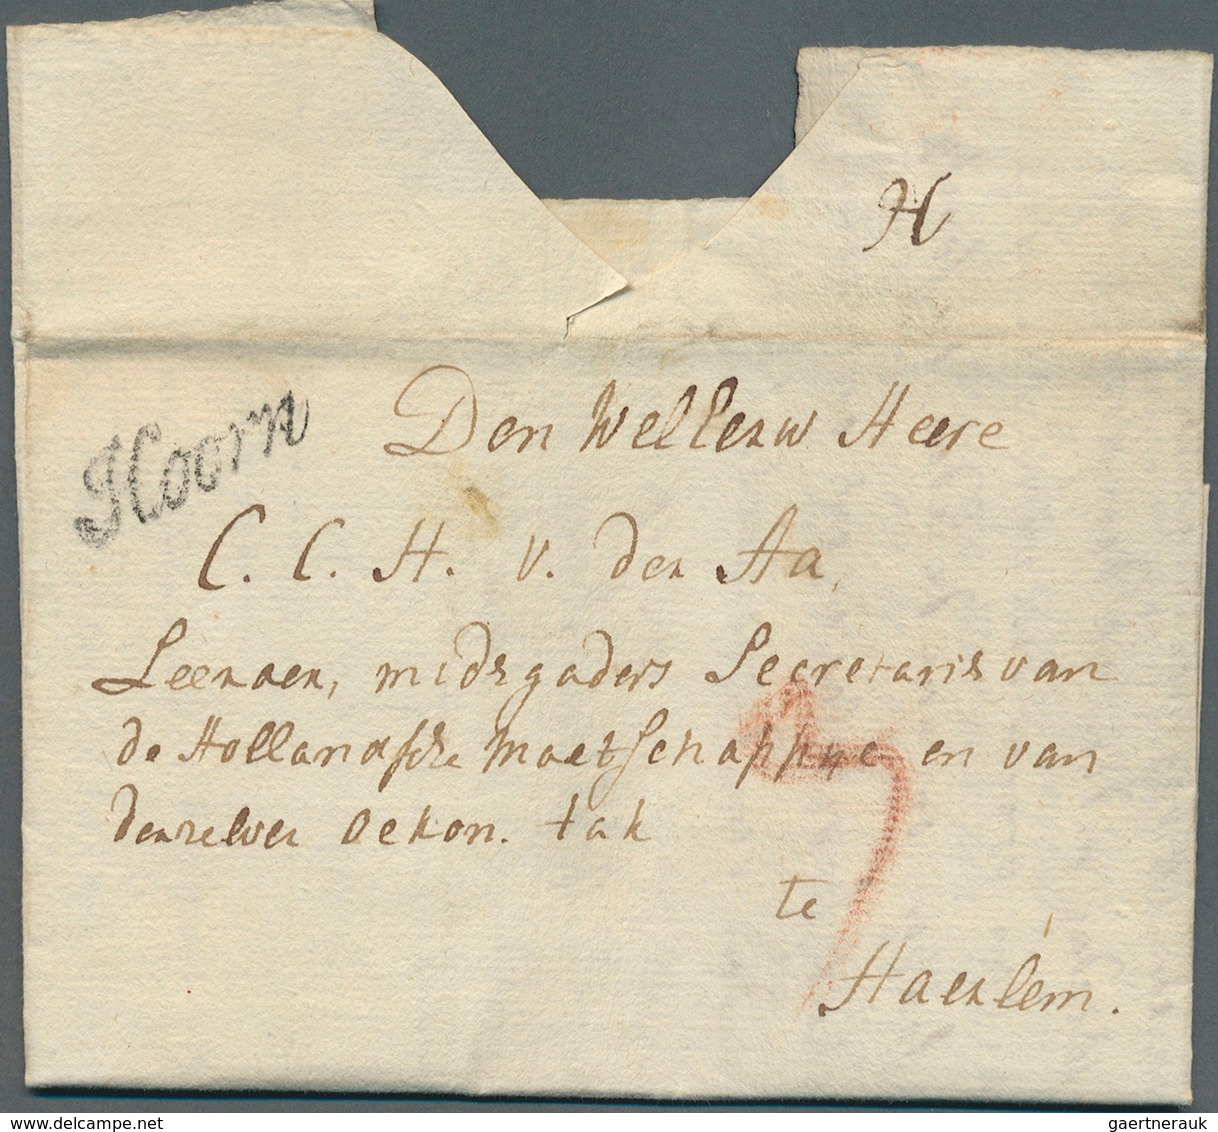 H
Hoorn
Den WelEerw Heere
C. C. H. v. den Aa,
midsgaders Secretaris van
de Hollandsche Maetschappye en van
denzelver Oekon. tak
te
Haerlem.
gaertnerauk